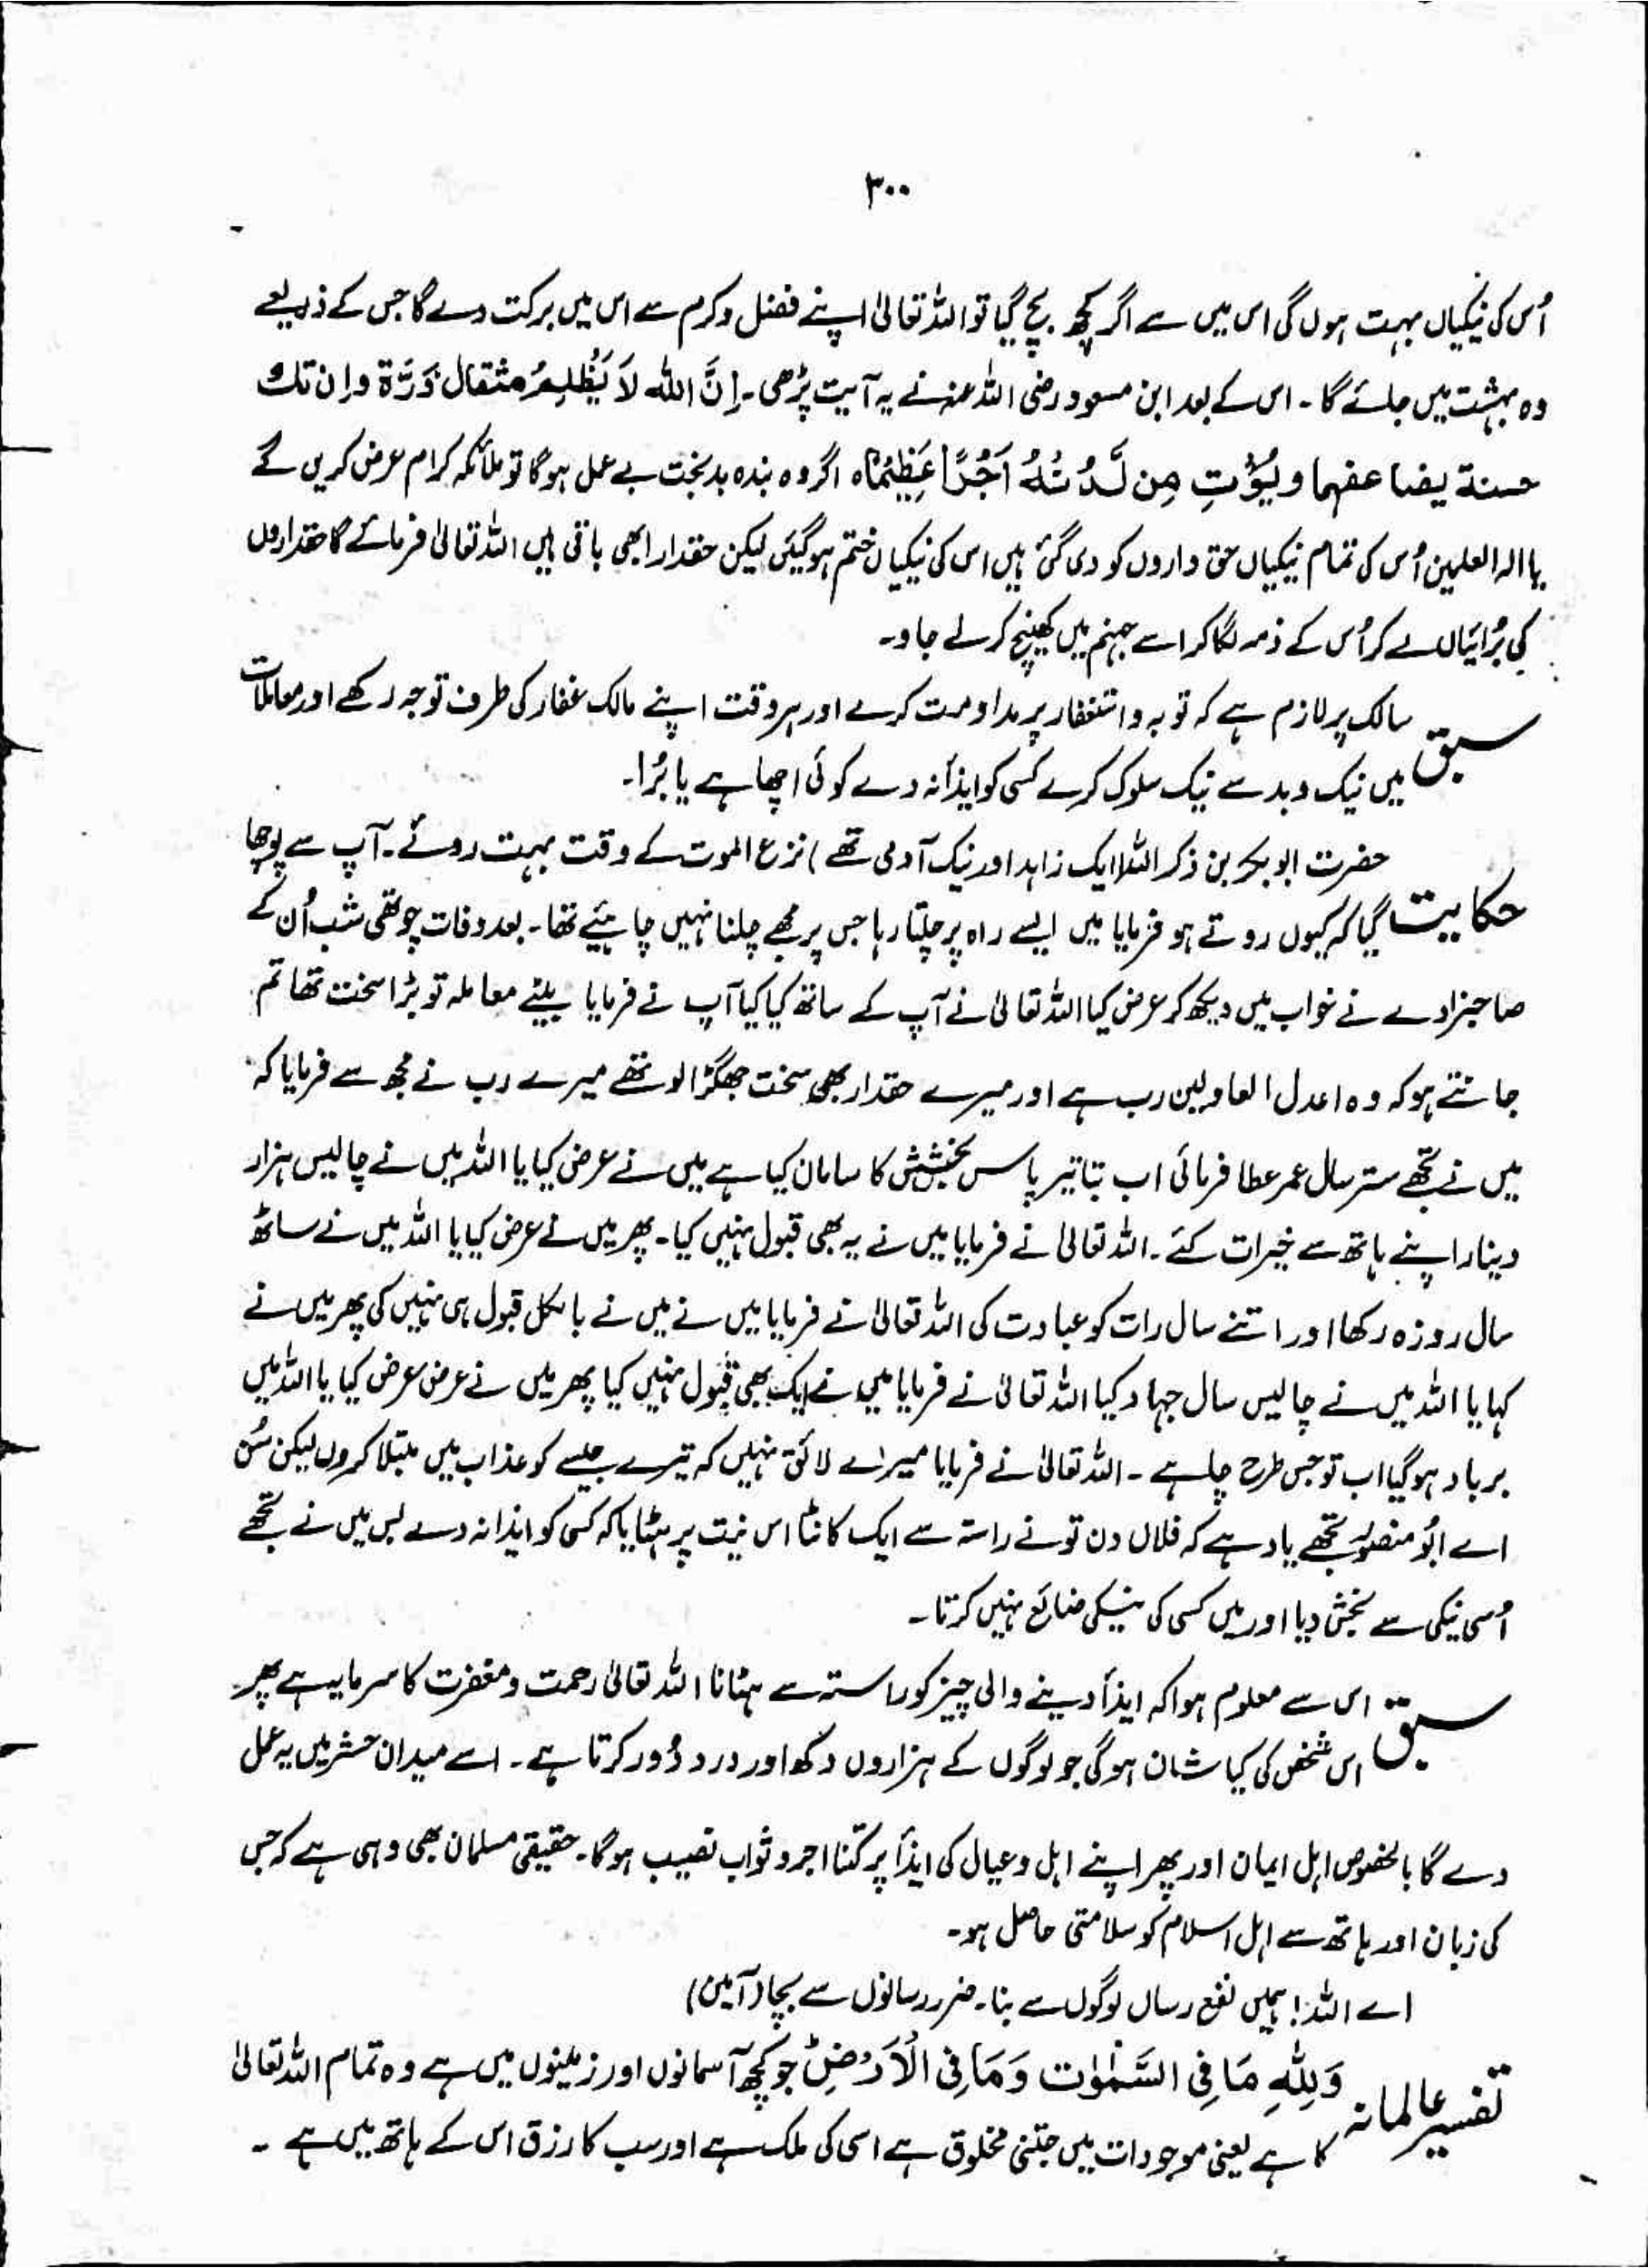 ۳۰۰
اُس کی نیکیاں بہت ہوں گی اس میں سے اگر کچھ بچ گیا تو اللہ تعالیٰ اپنے فضل و کرم سے اس میں برکت دے گا جس کے ذریعے
وہ بہشت میں جائے گا ۔ اس کے بعد ابن مسعود رضی اللہ عنہ نے یہ آیت پڑھی ۔ اِنَّ اللہ لَا یَظْلِمُ مثقال ذَرَّۃ وان تک
حسنة یضاعفہا و یُؤْتِ مِن لَّدُنْہُ اَجْرًا عَظِیْمًاہ اگر وہ بندہ بدبخت بے عمل ہوگا تو ملائکہ کرام عرض کریں گے
یا الہ العلمین اُس کی تمام نیکیاں حق داروں کو دی گئی ہیں اس کی نیکیاں ختم ہوگیئں لیکن حقدار ابھی باقی ہیں اللہ تعالیٰ فرمائے گا حقداروں
کی بُرائیاں لے کر اُس کے ذمہ لگا کر اسے جہنم میں کھینچ کر لے جاو ۔
سبق سالک پر لازم ہے کہ توبہ و استغفار پر مداومت کرے اور ہر وقت اپنے مالک غفار کی طرف توجہ رکھے اور معاملات
میں نیک و بد سے نیک سلوک کرے کسی کو ایذأ نہ دے کوئی اچھا ہے یا بُرا ۔
حکایت حضرت ابوبکر بن ذکر اللہ (ایک زاہد اور نیک آدمی تھے ) نزع الموت کے وقت بہت روئے ۔ آپ سے پوچھا
گیا کہ کیوں روتے ہو فرمایا میں ایسے راہ پر چلتا رہا جس پر مجھے چلنا نہیں چاہئیے تھا ۔ بعد وفات چوتھی شب اُن کے
صاحبزادے نے خواب میں دیکھ کر عرض کیا اللہ تعالیٰ نے آپ کے ساتھ کیا کیا آپ نے فرمایا بیٹے معاملہ تو بڑا سخت تھا تم
جانتے ہو کہ وہ اعدل العادلین رب ہے اور میرے حقدار بھی سخت جھگڑالو تھے میرے رب نے مجھ سے فرمایا کہ
میں نے تجھے ستر سال عمر عطا فرمائی اب بتا تیر پاس بخشش کا سامان کیا ہے میں نے عرض کیا یا اللہ میں نے چالیس ہزار
دینار اپنے ہاتھ سے خیرات کئے ۔ اللہ تعالیٰ نے فرمایا میں نے یہ بھی قبول نہیں کیا ۔ پھر میں نے عرض کیا یا اللہ میں نے ساٹھ
سال روزہ رکھا اور اتنے سال رات کو عبادت کی اللہ تعالیٰ نے فرمایا میں نے میں نے بالکل قبول ہی نہیں کی پھر میں نے
کہا یا اللہ میں نے چالیس سال جہاد کیا اللہ تعالیٰ نے فرمایا میں نے ایک بھی قبول نہیں کیا پھر میں نے عرض عرض کیا یا اللہ میں
برباد ہو گیا اب تو جس طرح چاہے ۔ اللہ تعالیٰ نے فرمایا میرے لائق نہیں کہ تیرے جیسے کو عذاب میں مبتلا کروں لیکن سُن
اے ابُو منصور تجھے یاد ہے کہ فلاں دن تو نے راستہ سے ایک کانٹا اس نیت پر ہٹایا کہ کسی کو ایذا نہ دے بس میں نے تجھے
اُسی نیکی سے بخش دیا اور میں کسی کی نیکی ضائع نہیں کرتا ۔
سبق اس سے معلوم ہوا کہ ایذأ دینے والی چیز کو راستہ سے ہٹانا اللہ تعالیٰ رحمت و مغفرت کا سرمایہ ہے پھر
اس شخص کی کیا شان ہوگی جو لوگوں کے ہزاروں دکھ اور درد دُور کرتا ہے ۔ اسے میدان حشر میں یہ عمل
دے گا بالخصوص اہل ایمان اور پھر اپنے اہل و عیال کی ایذأ پر کتنا اجر و ثواب نصیب ہوگا ۔ حقیقی مسلمان بھی وہی ہے کہ جس
کی زبان اور ہاتھ سے اہل اسلام کو سلامتی حاصل ہو ۔
اے اللہ! ہمیں نفع رساں لوگوں سے بنا ۔ ضرر رسانوں سے بچا (آمین)
تفسیر عالمانہ وَلِلّٰہِ مَا فِی السَّمٰوٰت وَمَا فِی الْاَرْضِ ط جو کچھ آسمانوں اور زمینوں میں ہے وہ تمام اللہ تعالیٰ
کا ہے یعنی موجودات میں جتنی مخلوق ہے اسی کی ملک ہے اور سب کا رزق اس کے ہاتھ میں ہے ۔